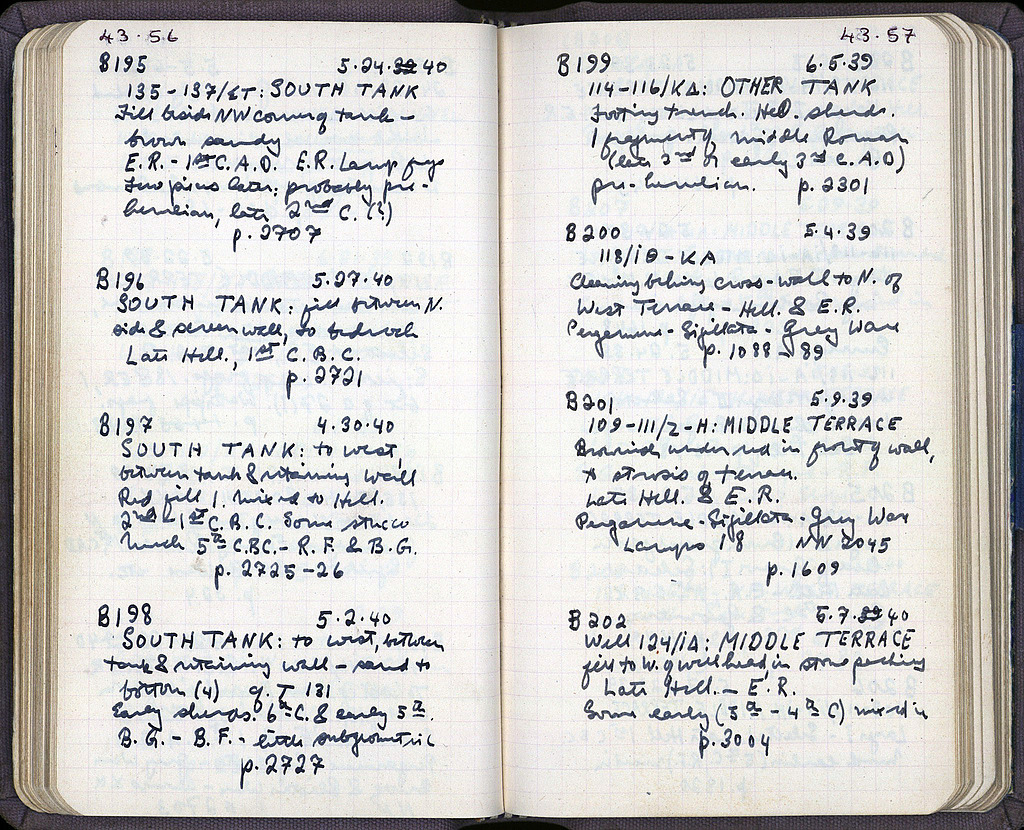 43·56
B195 5·24·39 40
135-137/ΣT: SOUTH TANK
Fill beside NW corner of tank -
brown sandy
E.R. - 1st C. A.D. E.R. Lamp frgs
Few pieces later: probably pre-
herulian, late 2nd C. (?)
p. 2707
B196 5·27·40
SOUTH TANK: fill between N.
side & screen wall, to bedrock
Late Hell., 1st C. B.C.
p. 2721
B197 4·30·40
SOUTH TANK: to west,
between tank & retaining wall
Red fill 1. mixed to Hell.
2nd & 1st C. B.C. Some stucco
Much 5th C.BC. - R.F. & B.G.
p. 2725-26
B198 5·2·40
SOUTH TANK: to west, between
tank & retaining wall - sand to
bottom (4) cf. T 131
Early sherds. 6th C. & early 5th.
B.G. - B.F. - little subgeometric
p. 2727
43·57
B199 6·5·39
114-116/KΔ: OTHER TANK
Footing trench. Hell. sherds.
1 fragment of middle Roman
(late 2nd or early 3rd C. A.D)
pre-herulian. p. 2301
B200 5·4·39
118/ΙΘ-ΚΑ
Cleaning behind cross-wall to N. of
West Terrace - Hell. & E.R.
Pergamene - Sigillata - Grey Ware
p. 1088-89
B201 5·9·39
109-111/Z-H: MIDDLE TERRACE
Brownish under red in front of wall,
terrace.
Late Hell. & E.R.
Pergamene - Sigillata - Grey Ware
Lamps 18 NN 2045
p. 1609
B202 5·7·39 40
Well 124/ΙΔ: MIDDLE TERRACE
fill to W. of wellhead, in stone packing
Late Hell. - E.R.
Some early (5th - 4th C) mixed in
p. 3004